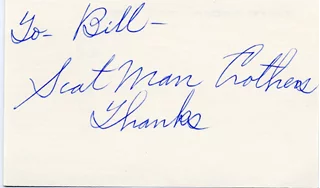 To- Bill-
Scat Man Crothers
Thanks